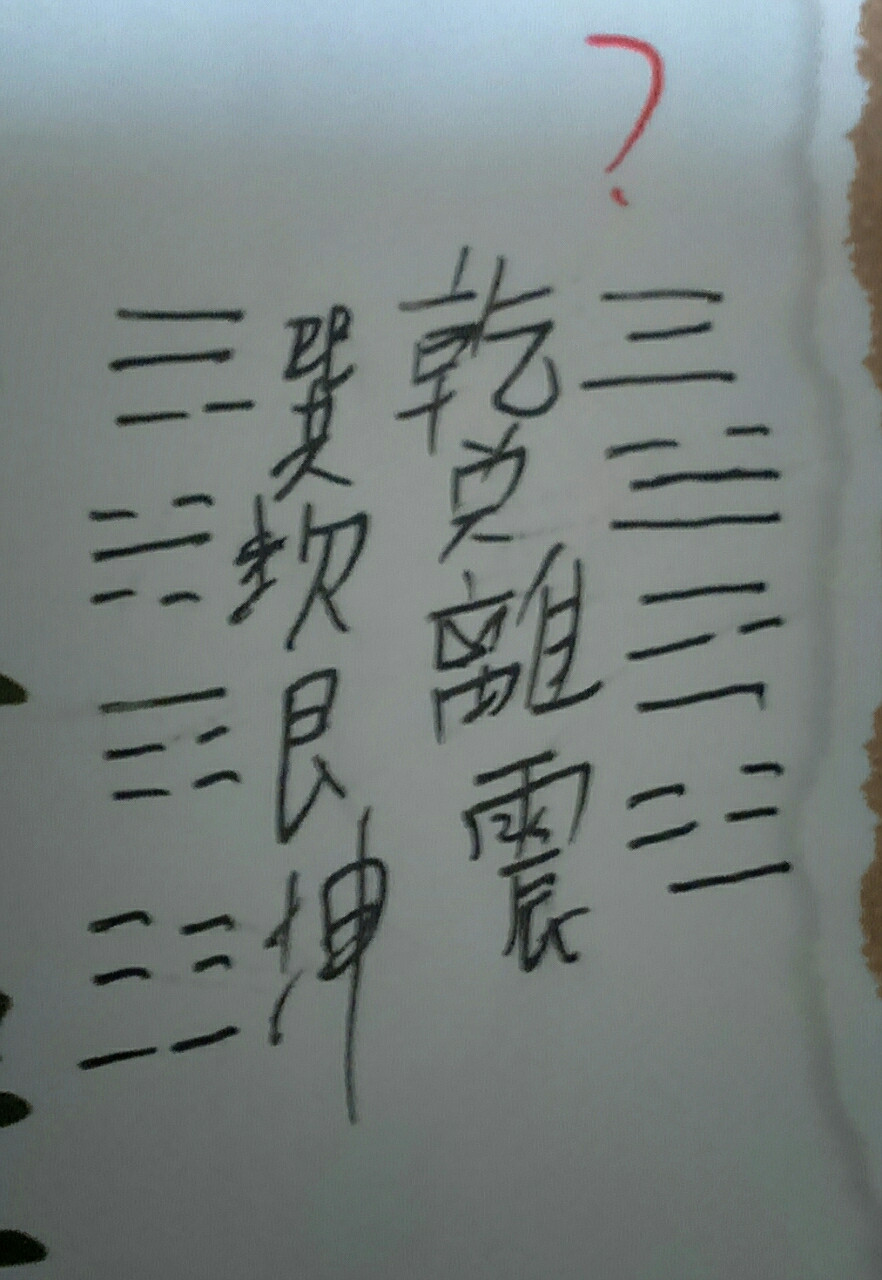 ?
乾 ☰
兌 ☱
離 ☲
震 ☳
☴ 巽
☵ 坎
☶ 艮
☷ 坤